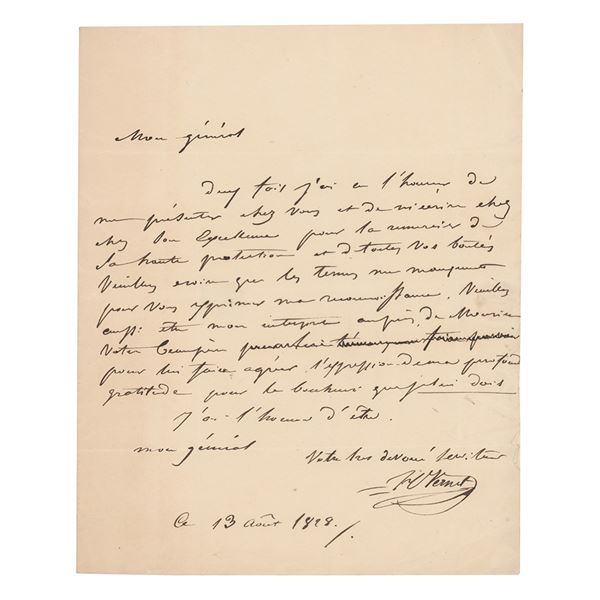 Mon général
deux fois j'ai eu l'honneur de
me présenter chez vous et de m'écrire chez
chez Son Excellence pour la remercier de
sa haute protection et de toutes vos bontés
Veuillez croire que les termes me manquent
pour vous exprimer ma reconnoissance. Veuillez
aussi être mon interprete auprès de Monsieur
Votre beaupère
pour lui faire agréer l'expression de ma profonde
gratitude pour le bonheur que je lui dois
J'ai l'honneur d'être.
mon général
Votre très devoué serviteur
H Vernet
Ce 13 Août 1828.